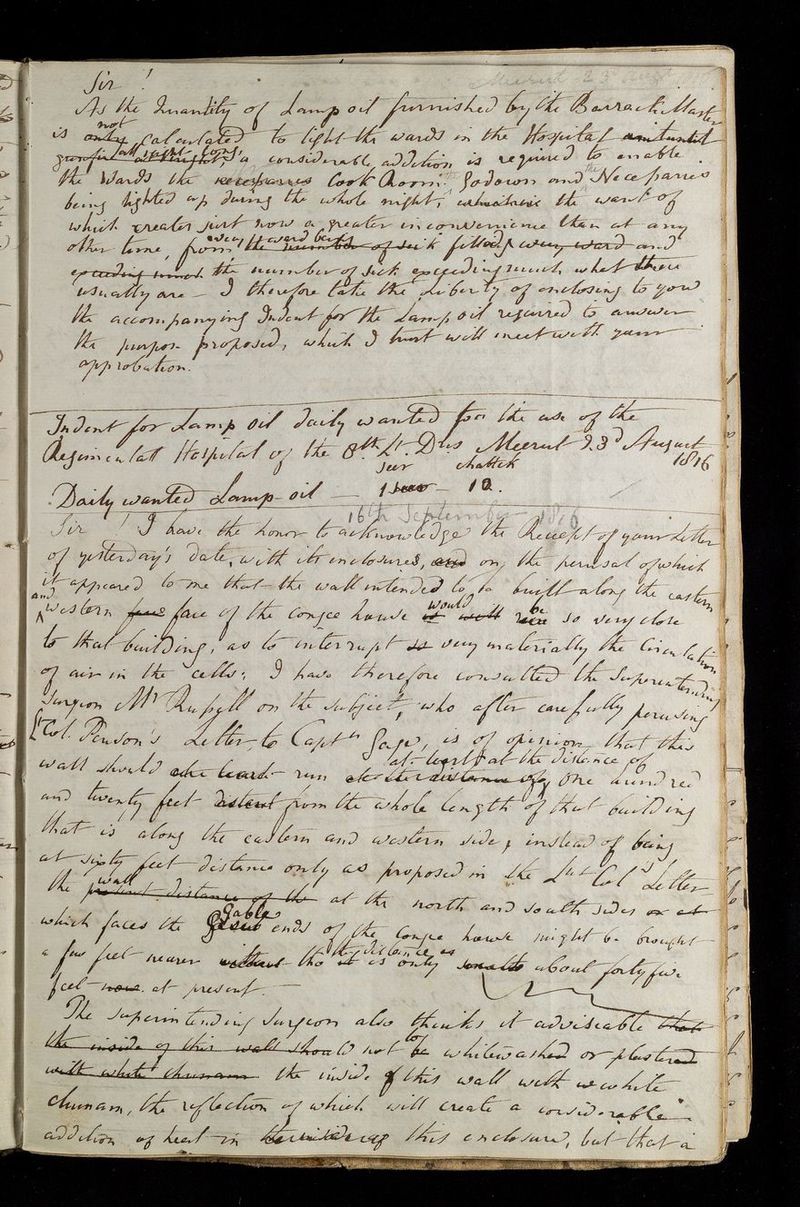 Sir! Meerut 23 Augt 1816
As the Quantity of Lamp oil furnished by the Barrack Master
is only not Calculated to light the wards in the Hospital
a considerable addition is required to enable
the Wards the necessaries Cook Room Godown and the Necessaries
being lighted up during the whole night, the want of
which creates just now a greater inconvenience than at any
other time, from every the ward being number of sick filled every ward and
exceeding the number of sick exceeding much what there
usually are – I therefore take the liberty of enclosing to you
the accompanying Indent for the Lamp oil required to answer
the purpose proposed, which I trust will meet with your
approbation.
Indent for Lamp Oil daily wanted for the use of the
Regimental Hospital of the 8th Lt. Dns Meerut 23d August
1816
Seer Chattak
Daily wanted Lamp-oil — 1 10.
16th September 1816
Sir I have the honor to acknowledge the Receipt of your Letter
of yesterday's date, with its enclosures, and on the perusal of which
it appeared to me that the wall intended to be built along the eastern
and western face of the congee house would be so very close
to that building, as to interrupt so very materially the Circulation
of air in the cells; I have therefore consulted the Superintending
Surgeon Mr Russell on the subject, who after carefully perusing
Lt Col. Penson's Letter to Captn Gage, is of opinion that this
wall should run at least at the distance of One hundred
and twenty feet distant from the whole length of that building
that is along the eastern and western side, instead of being
at sixty feet distance only as proposed in the Lut Col's Letter
the wall present distance of the at the north and south sides or at
which faces the Gable ends of the congee house might be brought
a few feet nearer without tho the distance is only about forty five
feet now at present.
The Superintending Surgeon also thinks it adviseable that
the inside of this wall should not to be whitewashed or plastered
with white chunam the inside of this wall with white
chunam, the reflection of which will create a considerable
addition of heat in the inside of this enclosure, but that a